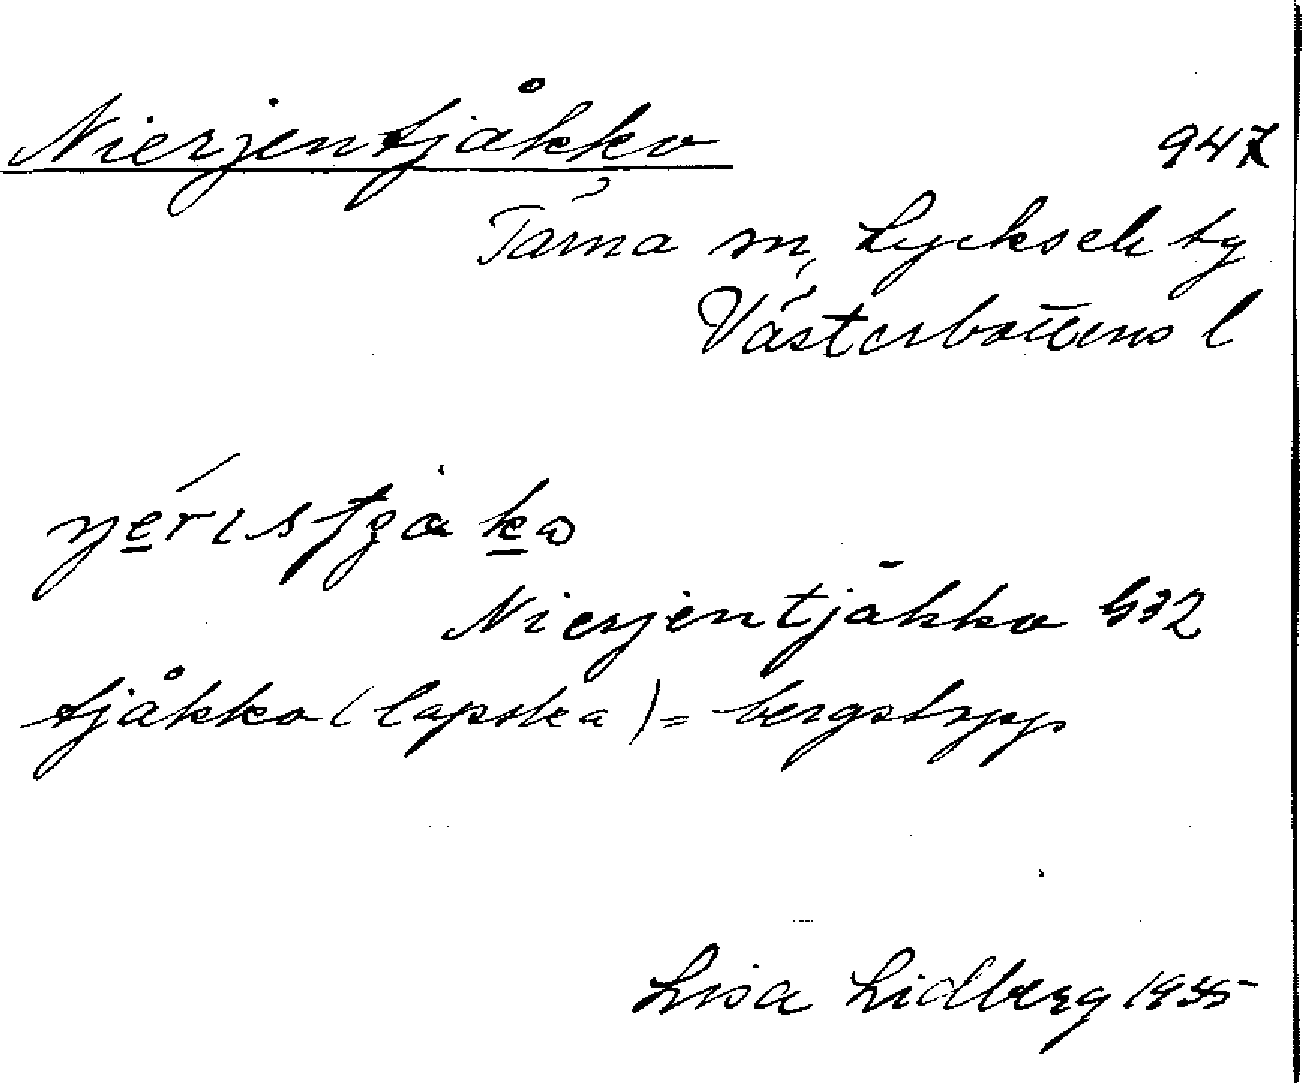 Nierjentjåkko 947
Tärna sn, Lycksele tg
Västerbottens l
Nierjentjåkko G32
tjåkko (lapska) = bergstopp
Lisa Lidberg 1935